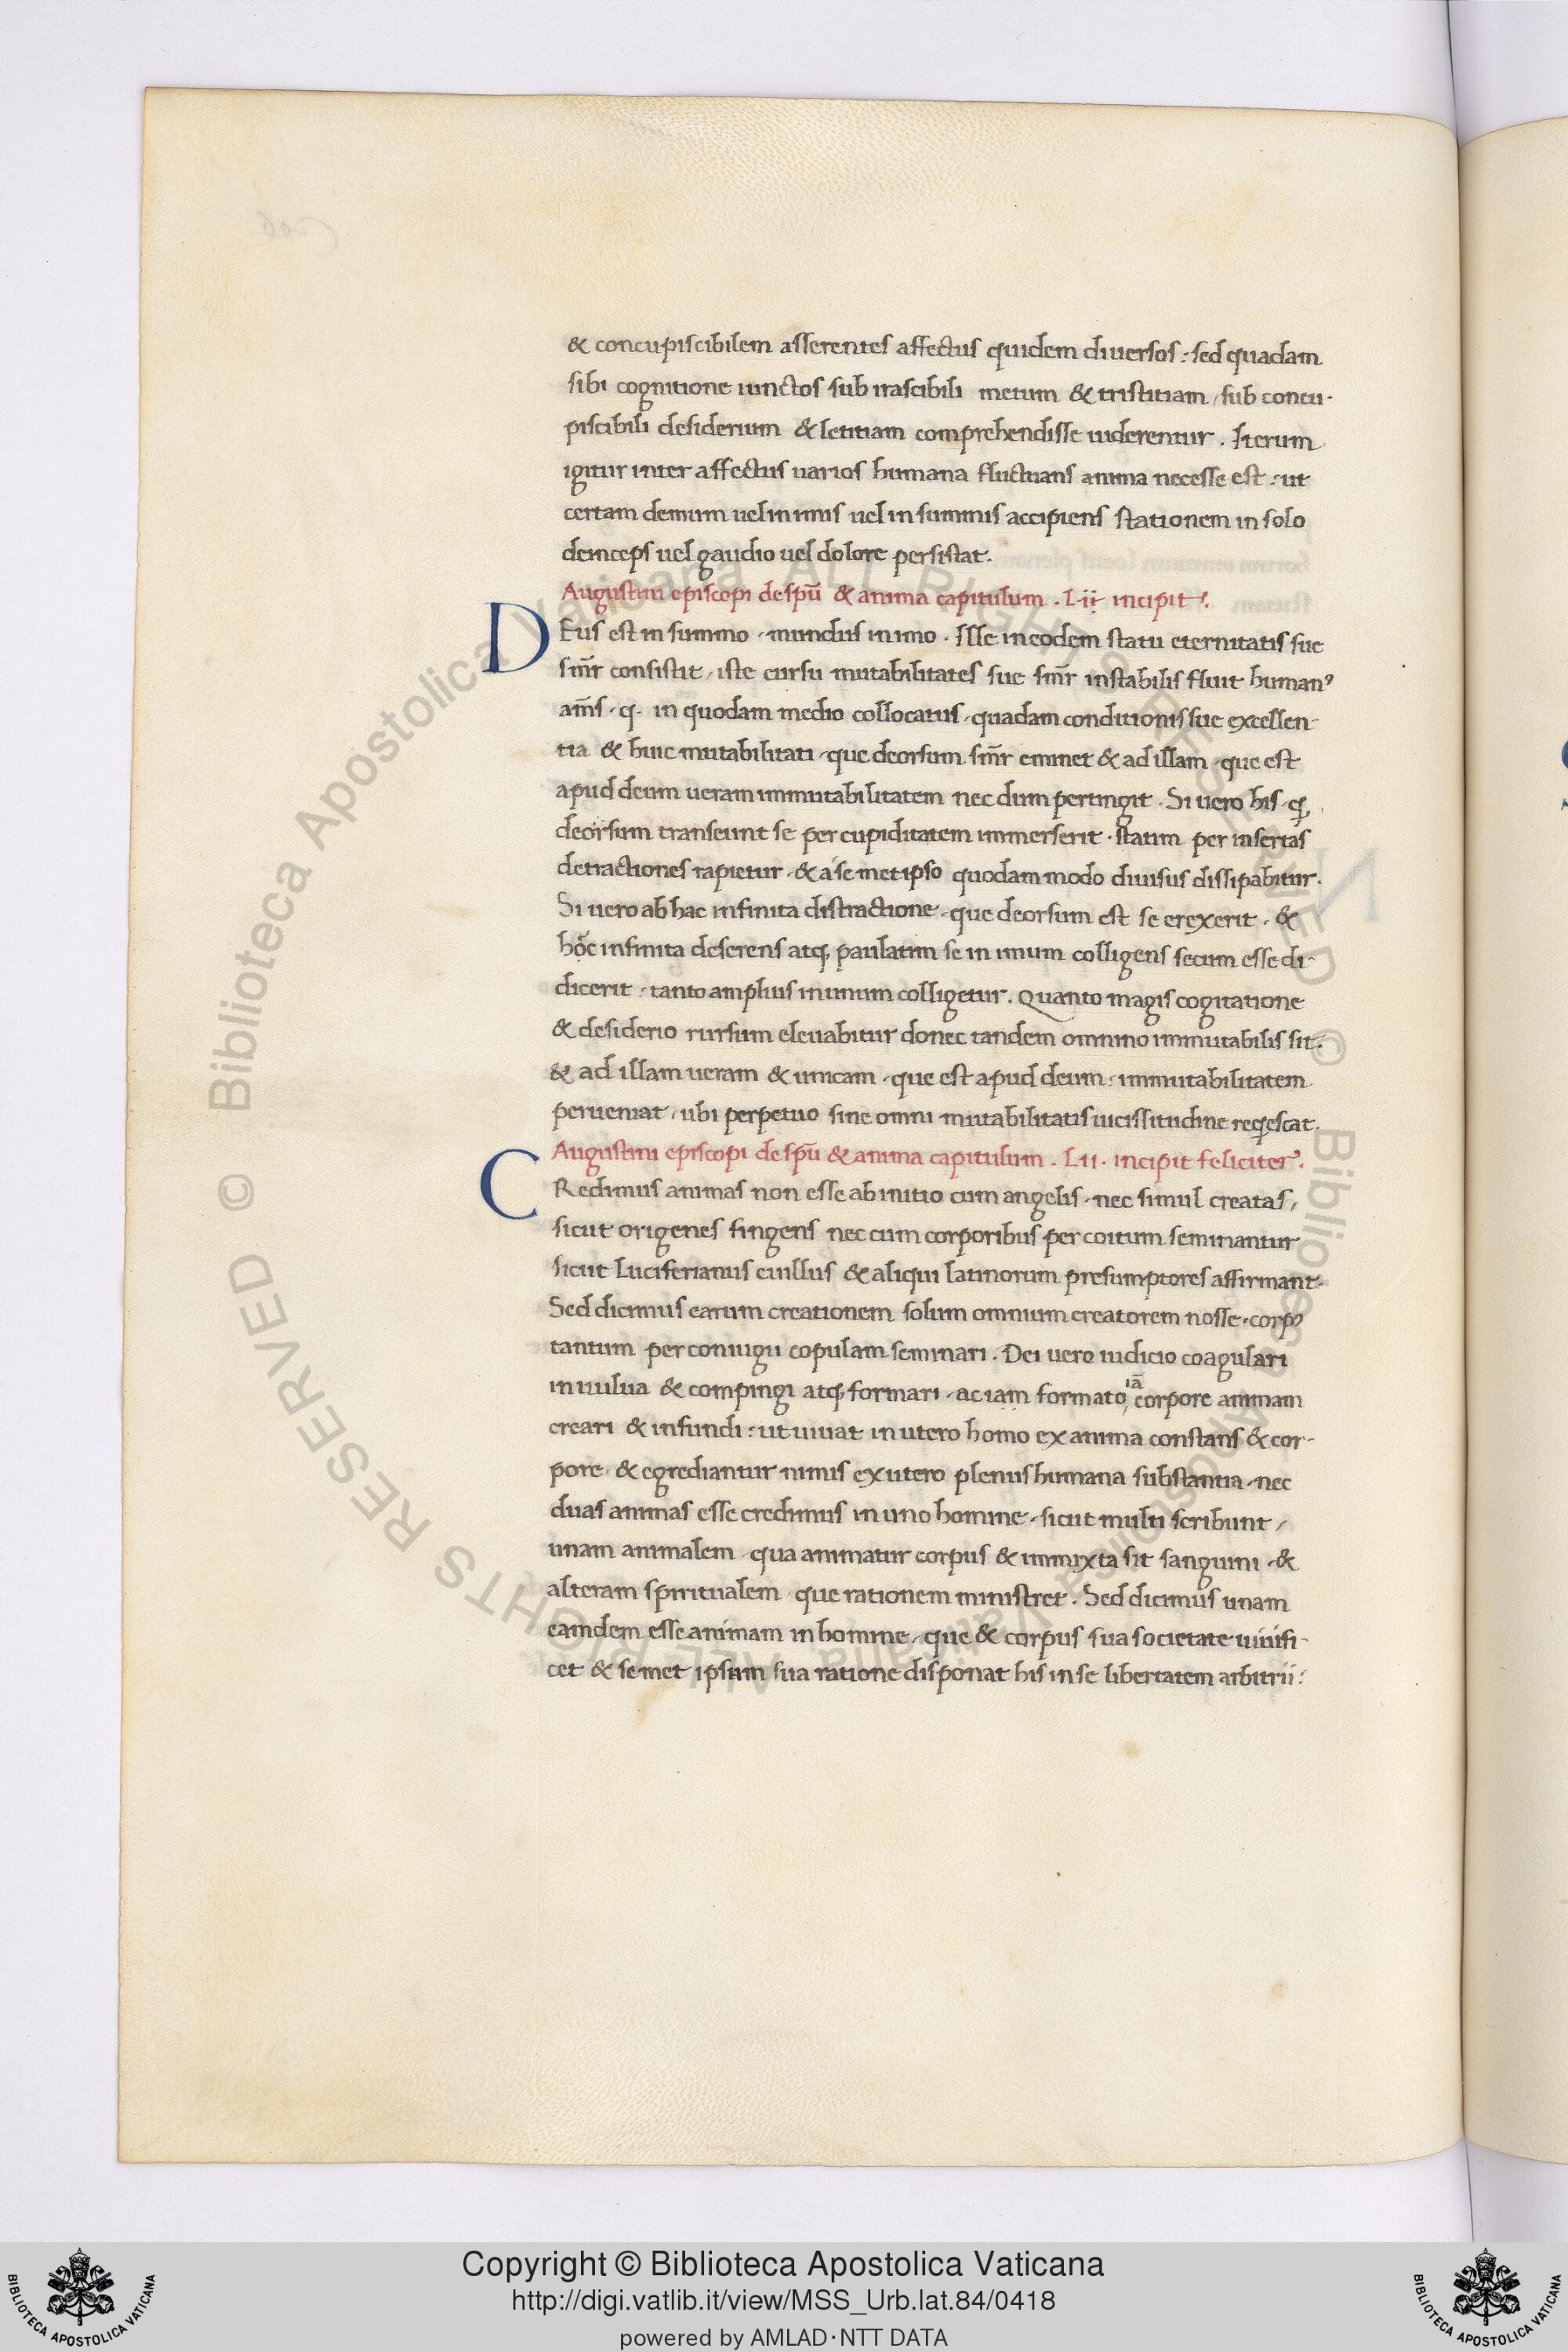 & concupiscibilem asserentes affectus quidem diuersos : sed quadam
sibi cognitione iunctos sub irascibili metum & tristitiam / sub concu-
piscibili desiderium & letitiam comprehendisse uiderentur . Iterum
igitur inter affectus uarios humana fluctuans anima necesse est : ut
certam demum uel in imis uel in summis accipiens stationem in solo
deinceps uel gaudio uel dolore persistat .
Augustini episcopi de spū & anima capitulum . L ii incipit
DEus est in summo · mundus in imo . Ille in eodem statu eternitatis sue
smr̄ consistit / iste cursu mutabilitates sue smr̄ instabilis fluit humanꝰ
am̄s · q · in quodam medio collocatus · quadam conditionis sue excellen-
tia & huic mutabilitati · que deorsum smr̄ eminet & ad illam · que est
apud deum ueram immutabilitatem nec dum pertingit . Si uero his · q
deorsum transeunt se per cupiditatem immerserit · statim per insertas
detractiones rapietur · & a se met ipso quodam modo diuisus dissipabitur .
Si uero ab hac infinita distractione · que deorsum est se erexerit · &
hoc infinita deserens atq; paulatim se in imum colligens secum esse di-
dicerit · tanto amplius in unum colligetur . Quanto magis cogitatione
& desiderio rursum eleuabitur donec tandem omnino immutabilis sit .
& ad illam ueram & unicam · que est apud deum · immutabilitatem
perueniat / ubi perpetuo sine omni mutabilitatis uicissitudine reqescat .
Augustini episcopi de spū & anima capitulum . L ii · incipit feliciter
CRedimus animas non esse ab initio cum angelis · nec simul creatas /
sicut origenes fingens nec cum corporibus per coitum seminantur
sicut Luciferianus cuillus & aliqui latinorum presumptores affirmant .
Sed dicimus earum creationem solum omnium creatorem nosse · corpꝰ
tantum per coniugii copulam seminari . Dei uero iudicio coagulari
in uulua & compingi atq; formari · ac iam formato iā corpore animam
creari & infundi : ut uiuat in utero homo ex anima constans & cor-
pore · & egrediantur nimis ex utero plenus humana substantia · nec
duas animas esse credimus in uno homine · sicut multi scribunt /
unam animalem · qua animatur corpus & immixta sit sanguini · &
alteram spiritualem · que rationem ministret . Sed dicimus unam
eamdem esse animam in homine · que & corpus sua societate uiuifi-
cet & semet ipsum sua ratione disponat his in se libertatem arbitrii :
Copyright © Biblioteca Apostolica Vaticana
http://digi.vatlib.it/view/MSS_Urb.lat.84/0418
powered by AMLAD·NTT DATA
BIBLIOTECA APOSTOLICA VATICANA
BIBLIOTECA APOSTOLICA VATICANA